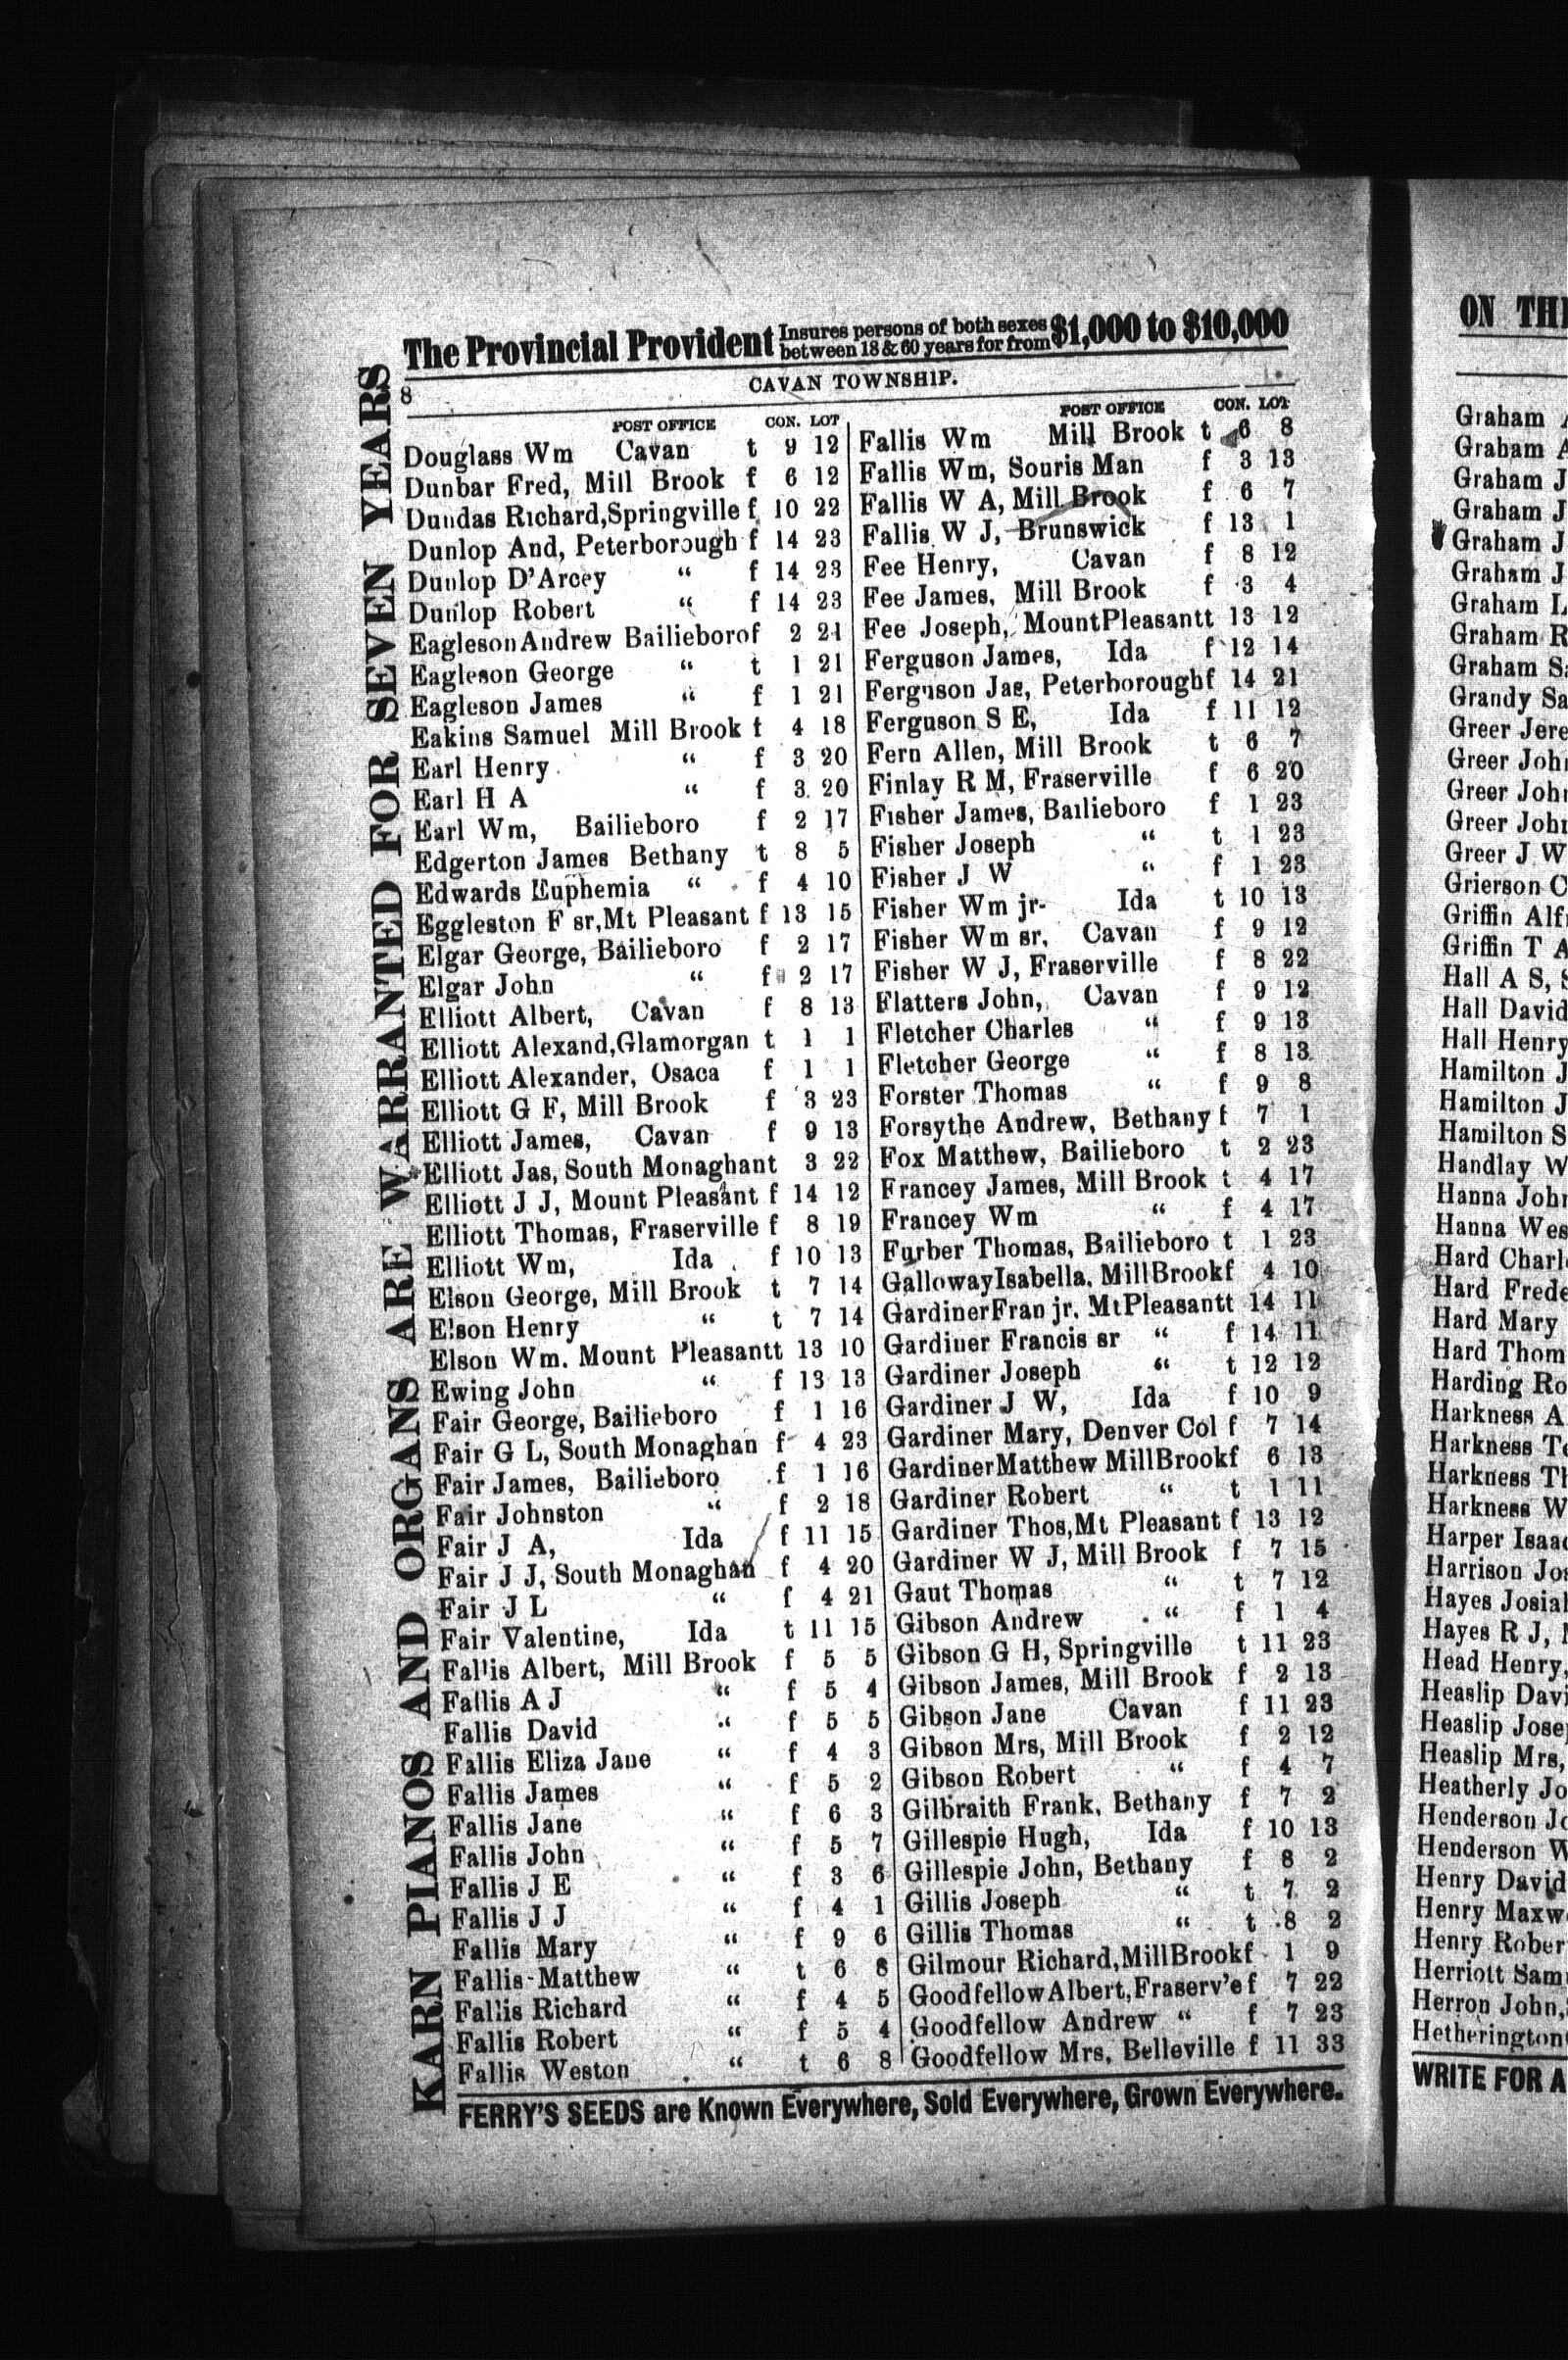 The Provincial Provident Insures persons of both sexes between 18 & 60 years for from $1,000 to $10,000
8
CAVAN TOWNSHIP.
KARN PIANOS AND ORGANS ARE WARRANTED FOR SEVEN YEARS
POST OFFICE CON. LOT
Douglass Wm Cavan t 9 12
Dunbar Fred, Mill Brook f 6 12
Dundas Richard, Springville f 10 22
Dunlop And, Peterborough f 14 23
Dunlop D'Arcey " f 14 23
Dunlop Robert " f 14 23
Eagleson Andrew Bailieboro f 2 21
Eagleson George " t 1 21
Eagleson James " f 1 21
Eakins Samuel Mill Brook t 4 18
Earl Henry " f 3 20
Earl H A " f 3 20
Earl Wm, Bailieboro f 2 17
Edgerton James Bethany t 8 5
Edwards Euphemia " f 4 10
Eggleston F sr, Mt Pleasant f 13 15
Elgar George, Bailieboro f 2 17
Elgar John " f 2 17
Elliott Albert, Cavan f 8 13
Elliott Alexand, Glamorgan t 1 1
Elliott Alexander, Osaca f 1 1
Elliott G F, Mill Brook f 3 23
Elliott James, Cavan f 9 13
Elliott Jas, South Monaghan t 3 22
Elliott J J, Mount Pleasant f 14 12
Elliott Thomas, Fraserville f 8 19
Elliott Wm, Ida f 10 13
Elson George, Mill Brook t 7 14
Elson Henry " t 7 14
Elson Wm. Mount Pleasant t 13 10
Ewing John " f 13 13
Fair George, Bailieboro f 1 16
Fair G L, South Monaghan f 4 23
Fair James, Bailieboro f 1 16
Fair Johnston " f 2 18
Fair J A, Ida f 11 15
Fair J J, South Monaghan f 4 20
Fair J L " f 4 21
Fair Valentine, Ida t 11 15
Fallis Albert, Mill Brook f 5 5
Fallis A J " f 5 4
Fallis David " f 5 5
Fallis Eliza Jane " f 4 3
Fallis James " f 5 2
Fallis Jane " f 6 3
Fallis John " f 5 7
Fallis J E " f 3 6
Fallis J J " f 4 1
Fallis Mary " f 9 6
Fallis Matthew " t 6 8
Fallis Richard " f 4 5
Fallis Robert " f 5 4
Fallis Weston " t 6 8
POST OFFICE CON. LOT
Fallis Wm Mill Brook t 6 8
Fallis Wm, Souris Man f 3 13
Fallis W A, Mill Brook f 6 7
Fallis W J, Brunswick f 13 1
Fee Henry, Cavan f 8 12
Fee James, Mill Brook f 3 4
Fee Joseph, Mount Pleasant t 13 12
Ferguson James, Ida f 12 14
Ferguson Jas, Peterborough f 14 21
Ferguson S E, Ida f 11 12
Fern Allen, Mill Brook t 6 7
Finlay R M, Fraserville f 6 20
Fisher James, Bailieboro f 1 23
Fisher Joseph " t 1 23
Fisher J W " f 1 23
Fisher Wm jr- Ida t 10 13
Fisher Wm sr, Cavan f 9 12
Fisher W J, Fraserville f 8 22
Flatters John, Cavan f 9 12
Fletcher Charles " f 9 13
Fletcher George " f 8 13
Forster Thomas " f 9 8
Forsythe Andrew, Bethany f 7 1
Fox Matthew, Bailieboro t 2 23
Francey James, Mill Brook t 4 17
Francey Wm " f 4 17
Furber Thomas, Bailieboro t 1 23
Galloway Isabella, Mill Brook f 4 10
Gardiner Fran jr. Mt Pleasant t 14 11
Gardiner Francis sr " f 14 11
Gardiner Joseph " t 12 12
Gardiner J W, Ida f 10 9
Gardiner Mary, Denver Col f 7 14
Gardiner Matthew Mill Brook f 6 13
Gardiner Robert " t 1 11
Gardiner Thos, Mt Pleasant f 13 12
Gardiner W J, Mill Brook f 7 15
Gaut Thomas " t 7 12
Gibson Andrew " f 1 4
Gibson G H, Springville t 11 23
Gibson James, Mill Brook f 2 13
Gibson Jane Cavan f 11 23
Gibson Mrs, Mill Brook f 2 12
Gibson Robert " f 4 7
Gilbraith Frank, Bethany f 7 2
Gillespie Hugh, Ida f 10 13
Gillespie John, Bethany f 8 2
Gillis Joseph " t 7 2
Gillis Thomas " t 8 2
Gilmour Richard, Mill Brook f 1 9
Goodfellow Albert, Fraserv'e f 7 22
Goodfellow Andrew " f 7 23
Goodfellow Mrs, Belleville f 11 33
FERRY'S SEEDS are Known Everywhere, Sold Everywhere, Grown Everywhere.
ON
Graham
Graham
Graham J
Graham J
Graham J
Graham J
Graham
Graham R
Graham
Grandy
Greer
Greer
Greer
Greer
Greer J W
Grierson
Griffin
Griffin T
Hall A S,
Hall David
Hall Henry
Hamilton J
Hamilton J
Hamilton S
Handlay
Hanna
Hanna
Hard
Hard
Hard Mary
Hard
Harding
Harkness
Harkness
Harkness
Harkness
Harper
Harrison
Hayes
Hayes R J,
Head Henry,
Heaslip
Heaslip
Heaslip Mrs,
Heatherly
Henderson
Henderson
Henry David
Henry
Henry
Herriott
Herron John,
Hetherington
WRITE FOR A